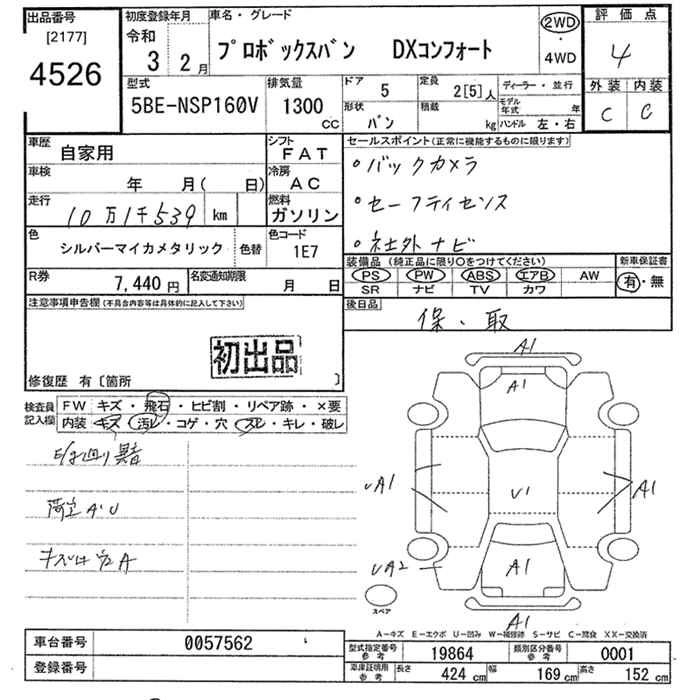 出品番号
[2177]
4526
初度登録年月
令和
3 2月
車名・グレード
プロボックスバン DXコンフォート
2WD
・
4WD
評価点
4
外装 内装
C C
型式
5BE-NSP160V
排気量
1300
CC
ドア 5
形状 バン
定員 2[5]人
積載 kg
ディーラー・並行
モデル年式 年
ハンドル 左・右
車歴
自家用
シフト
FAT
車検
年 月( 日)
冷房
AC
走行
10万1千539 km
燃料
ガソリン
色
シルバーマイカメタリック
色替
色コード
1E7
R券 7,440円
名変通知期限 月 日
セールスポイント(正常に機能するものに限ります)
・バックカメラ
・セーフティセンス
・社外ナビ
装備品(純正品に限り〇をつけてください)
PS PW ABS エアB AW
SR ナビ TV カワ
新車保証書
有・無
後日品
保・取
注意事項申告欄(不具合内容等は具体的に記入して下さい)
初出品
修復歴 有〔箇所 〕
検査員記入欄
FW キズ・飛石・ヒビ割・リペア跡・×要
内装 キズ・汚レ・コゲ・穴・スレ・キレ・破レ
荷室A・U
A1
A1
UA1
U1
A1
UA2
A1
A1
スペア
A－キズ E－エクボ U－凹み W－補修跡 S－サビ C－腐食 XX－交換済
車台番号 0057562
登録番号
型式指定番号参考 19864
類別区分番号参考 0001
車庫証明用参考 長さ 424cm 幅 169cm 高さ 152cm